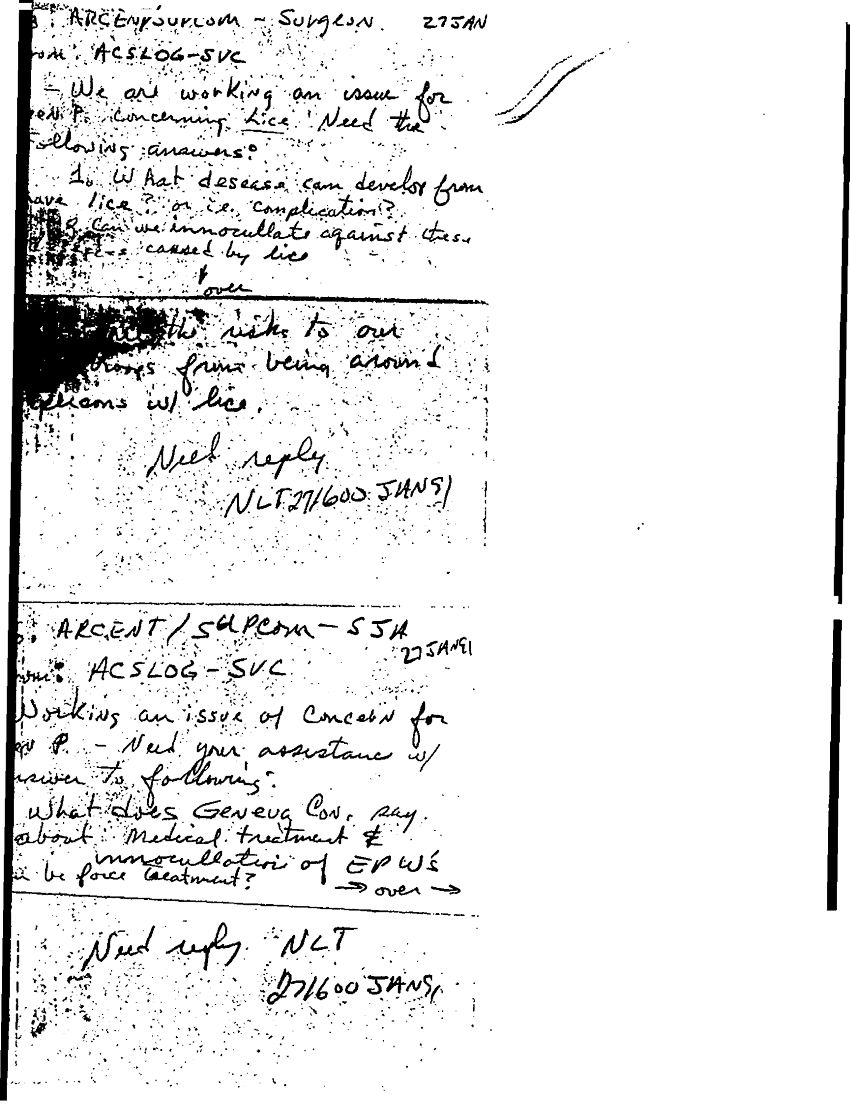 : ARCENT/SUPCOM - Surgeon 27 JAN
om: ACSLOG-SVC
- We are working an issue for
en P. concerning Lice. Need the
ollowing answers:
1. What desease can develop from
ave lice? or i.e. complication?
Can we innocullate against these
caused by lice
over
the risks to our
troops from being around
w/ lice.
Need reply
NLT 271600 JAN91
: ARCENT/SUPCOM - SJA
27 JAN91
om: ACSLOG-SVC
Working an issue of Concern for
en P. - Need your assistance w/
nswer to following:
What does Geneva Con. say
about Medical treatment &
innocullation of EPW's
be force treatment?
→ over →
Need reply NLT
271600 JAN91